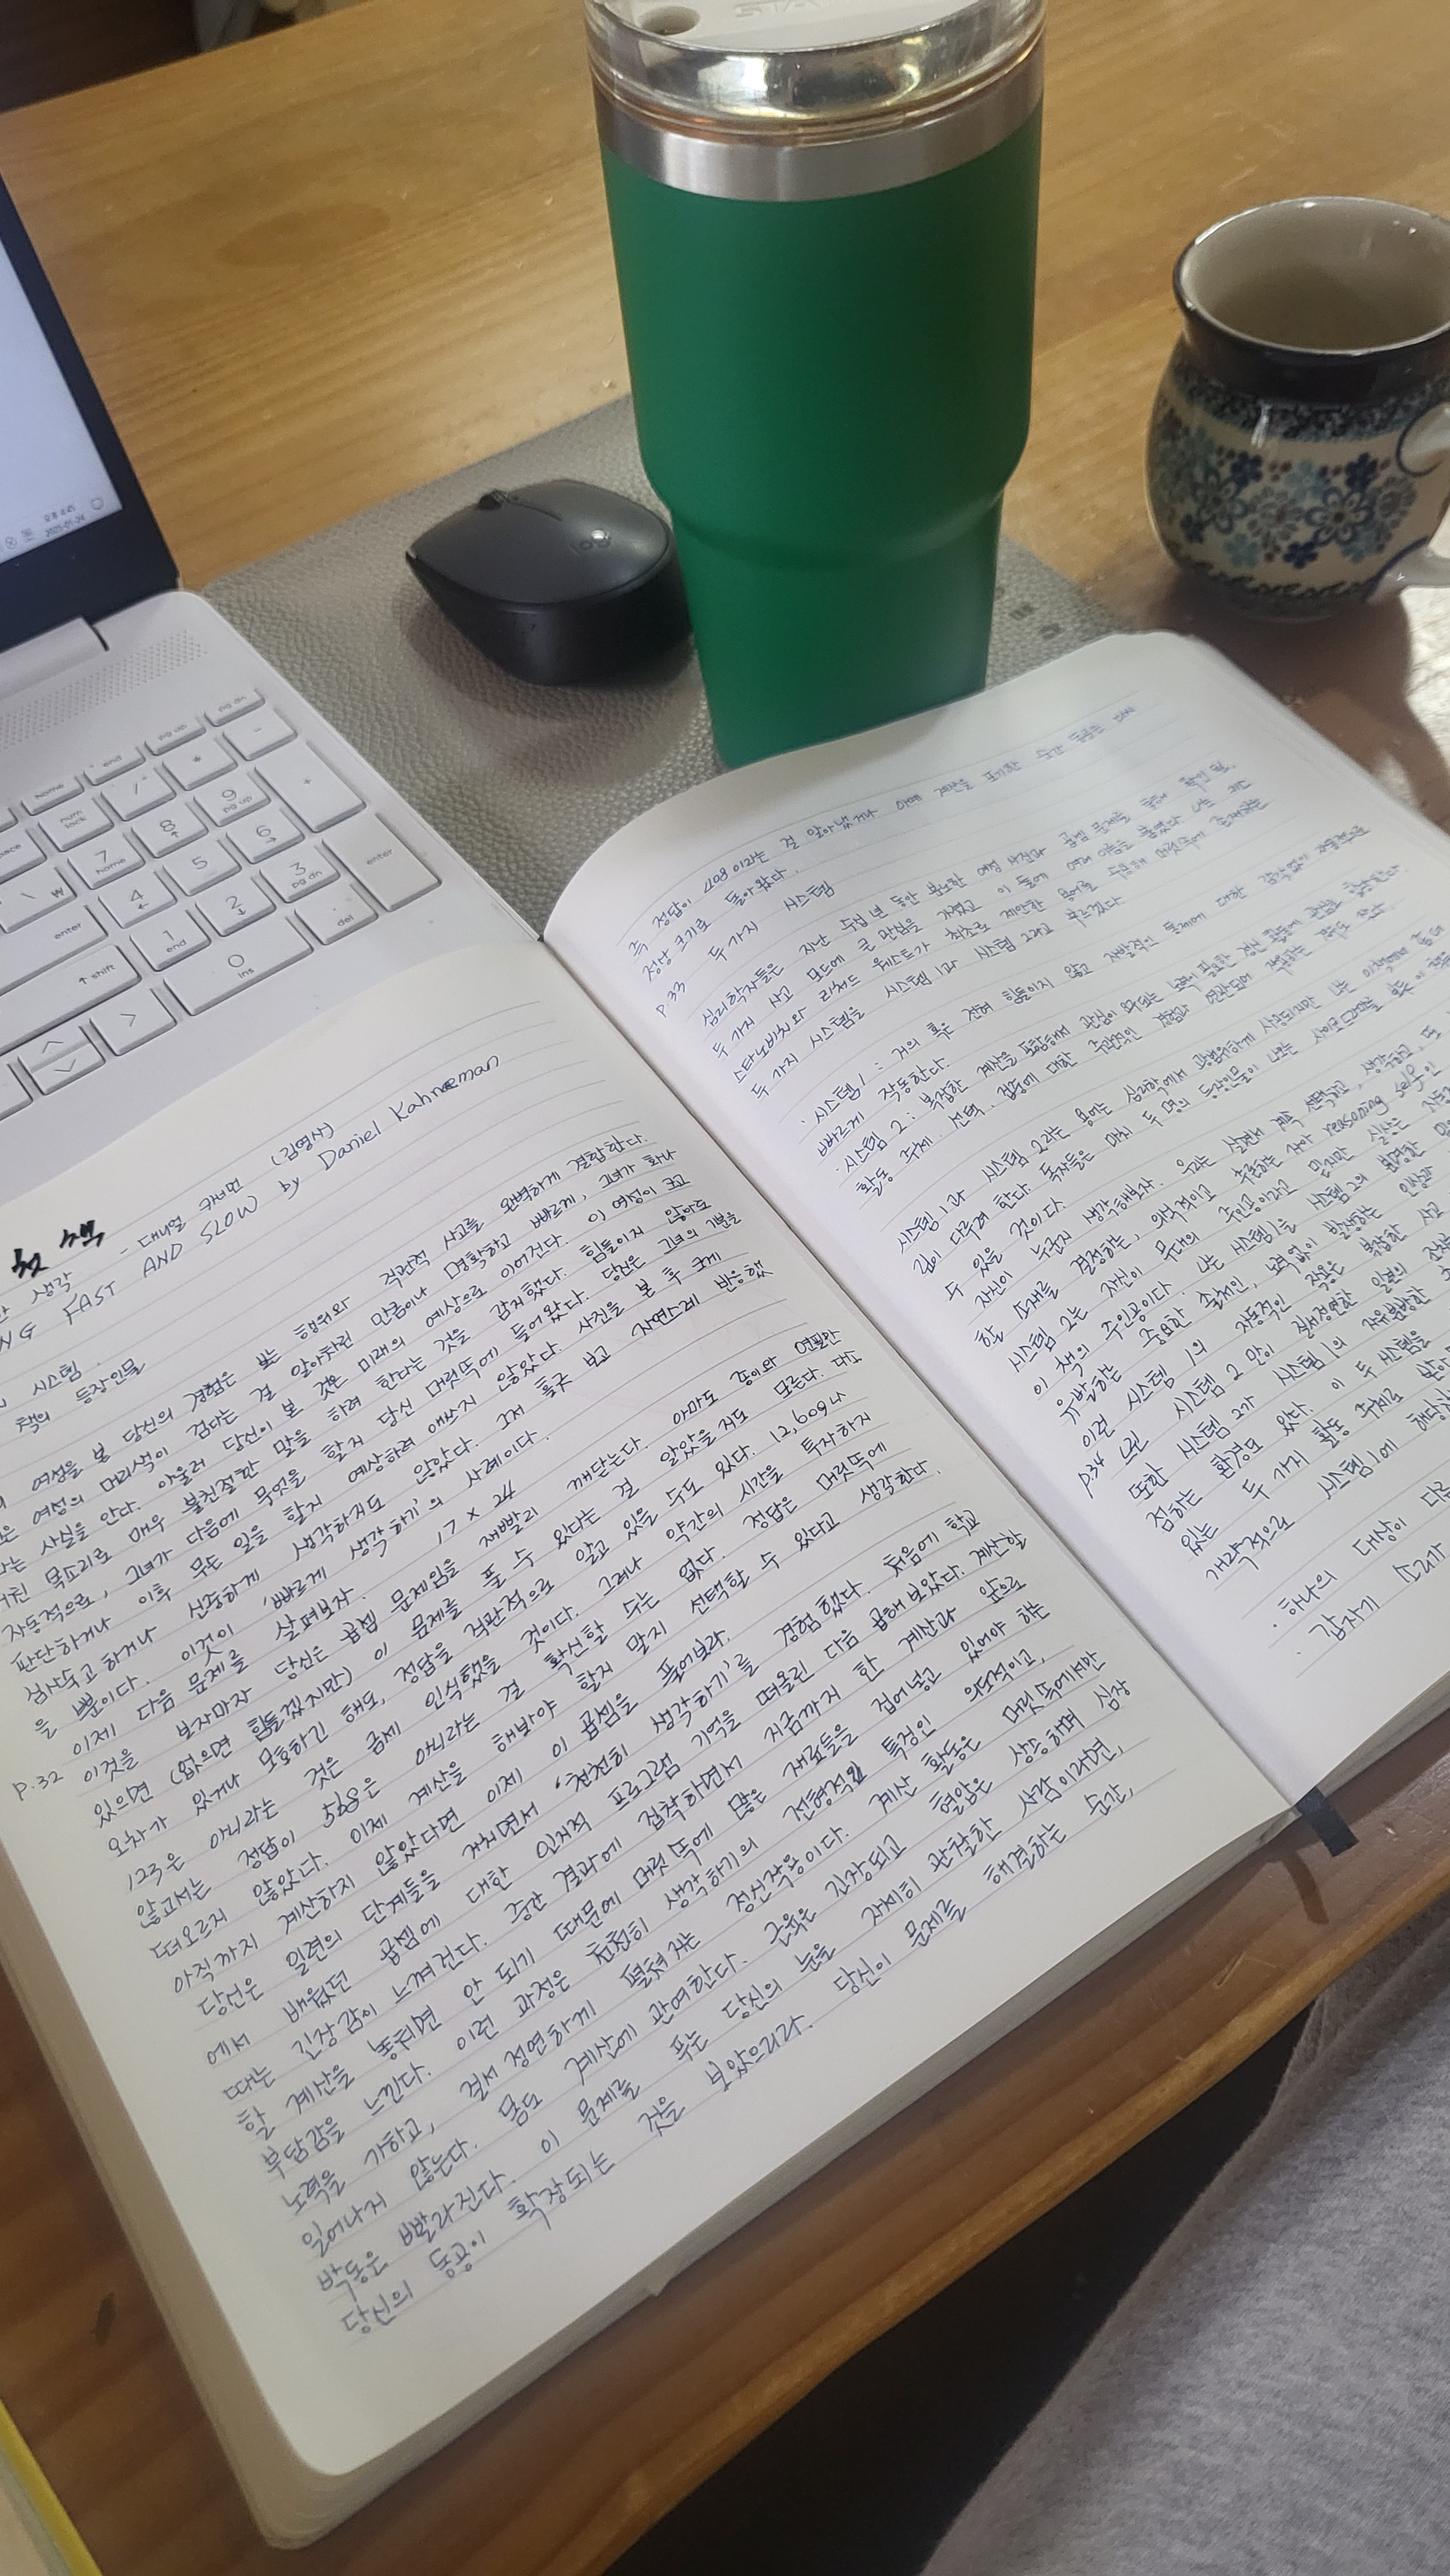 오후 4:45
2025-05-24
home
end
pg up
pg dn
num lock
/
*
-
7 home
8
9 pg up
+
4
5
6
enter
1 end
2
3 pg dn
0 ins
del
shift
enter
생각 - 대니얼 카너먼 (김영사)
FAST AND SLOW by Daniel Kahneman
시스템
책의 등장인물
여성을 본 당신의 경험은 보는 행위와 직관적 사고를 완벽하게 결합한다.
여성의 머리색이 검다는 걸 알아차린 만큼이나 명확하고 빠르게, 그녀가 화나
는 사실을 안다. 아울러 당신이 본 것은 미래의 예상으로 이어진다. 이 여성이 크고
거친 목소리로 매우 불친절한 말을 하려 한다는 것을 감지했다. 힘들이지 않아도
자동적으로, 그녀가 다음에 무엇을 할지 당신 머릿속에 들어왔다. 당신은 그녀의 기분을
판단하거나 이후 무슨 일을 할지 예상하려 애쓰지 않았다. 사진을 본 후 크게
심사숙고 하거나 신중하게 생각하지도 않았다. 그저 훑고 보고 자연스레 반응했
을 뿐이다. 이것이 '빠르게 생각하기'의 사례이다.
이제 다음 문제를 살펴보자. 17 × 24
p.32 이것을 보자마자 당신은 곱셈 문제임을 재빨리 깨닫는다. 아마도 종이와 연필만
있으면 (없으면 힘들겠지만) 이 문제를 풀 수 있다는 걸 알았을지도 모른다. 대소
오차가 있거나 모호하긴 해도, 정답을 직관적으로 알고 있을 수도 있다. 12,609나
123은 아니라는 것은 금세 인식했을 것이다. 그러나 약간의 시간을 투자하지
않고서는 정답이 568은 아니라는 걸 확신할 수는 없다. 정답은 머릿속에
떠오르지 않았다. 이제 계산을 해봐야 할지 말지 선택할 수 있다고 생각한다.
아직까지 계산하지 않았다면 이제 이 곱셈을 풀어보라.
당신은 일련의 단계들을 거치면서 '천천히 생각하기'를 경험했다. 처음에 학교
에서 배웠던 곱셈에 대한 인지적 프로그램 기억을 떠올린 다음 곱해 보았다. 계산할
때는 긴장감이 느껴진다. 중간 결과에 집착하면서 지금까지 한 계산과 앞으로
할 계산을 놓치면 안 되기 때문에 머릿속에 많은 재료들을 집어넣고 있어야 하는
부담감을 느낀다. 이런 과정은 천천히 생각하기의 전형적인 특정인 의도적이고,
노력을 가하고, 질서정연하게 펼쳐지는 정신작용이다. 계산 활동은 머릿속에서만
일어나지 않는다. 몸도 계산에 관여한다. 근육은 긴장되고 혈압은 상승하며 심장
박동은 빨라진다. 이 문제를 푸는 당신의 눈을 자세히 관찰한 사람이라면,
당신의 동공이 확장되는 것을 보았으리라. 당신이 문제를 해결하는 순간,
즉 정답이 408이라는 걸 알아냈거나 아예 계산을 포기한 순간 동공은 다시
정상 크기로 돌아왔다.
p.33 두 가지 시스템
심리학자들은 지난 수십 년 동안 분노한 여성 사진과 곱셈 문제를 통해 확인 된,
두 가지 사고 모드에 큰 관심을 가졌고 이 둘에 여러 이름을 붙였다. 나는 키스
스타노비치와 리처드 웨스트가 최초로 제안한 용어로 수용해 머릿속에 존재하는
두 가지 시스템을 시스템 1과 시스템 2라고 부르겠다
· 시스템 1 : 거의 혹은 전혀 힘들이지 않고 자발적인 통제에 대한 감각없이 자동적으로
빠르게 작동한다.
· 시스템 2 : 복잡한 계산을 포함해서 관심이 요구되는 노력이 필요한 정신 활동에 관심을 할당한다.
활동 주체, 선택, 집중에 대한 주관적인 경험과 연관되어 작동하는
시스템 1과 시스템 2라는 용어는 심리학에서 광범위하게 사용되지만 나는 이 책에서
깊이 다루려 한다. 독자들은 마치 두 명의 등장인물이 나오는 사이코드라마를
수 있을 것이다.
자신이 누군지 생각해보자. 우리는 살면서 계속 선택하고, 생각하고,
할 문제를 결정하는, 의식적이고 추론하는 자아 reasoning self을
시스템 2는 자신이 무대의 주인공이라고 믿지만 실상은
이 책의 주인공이다. 나는 시스템 1을 시스템 2의 분명한
유발하는 중요한 출처인, 노력 없이 발생하는 인상과
이런 시스템 1의 자동적인 작용은 복잡한 사고
p.34 느린 시스템 2 만이 질서정연한 일련의
또한 시스템 2가 시스템 1의 자유분방한
점하는 환경도 있다. 이 두 시스템을
있는 두 가지 활동 주체로
개략적으로 시스템 1에
· 하나의 대상이
갑자기 소리가